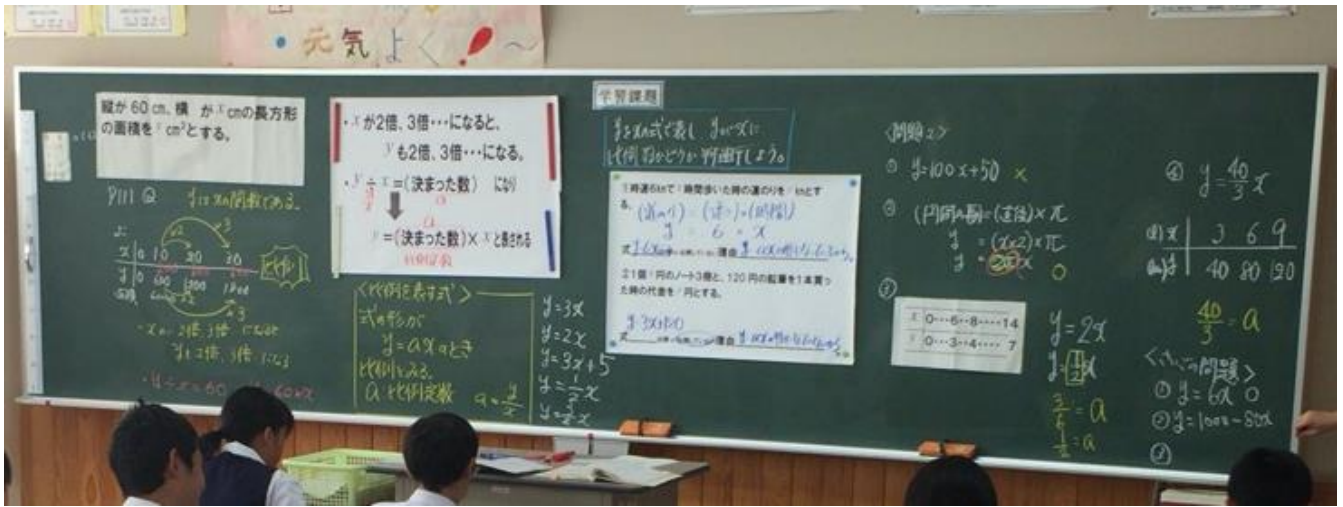 ・元気よく！～
縦が 60 cm、横 が x cmの長方形
の面積を y cm²とする。
P111 ② yはxの関数である。
x 0 10 20 30
y 0 600 1200 1800
・xが 2倍 3倍 になると
yも2倍、3倍 になる
・y÷x=60
・xが2倍、3倍…になると、
yも2倍、3倍…になる。
・y÷x＝(決まった数) になり
a
y＝(決まった数)× x と表される
比例定数
<比例を表す式>
式の形が
y=axのとき
比例している。
a 比例定数 a=y/x
y=3x
y=2x
y=3x+5
y=1/2x
学習課題
yをxの式で表し yがxに
比例するかどうか 判断しよう。
1時速6kmで x 時間歩いた時の道のりを y kmとす
る。
(道のり)=(速さ)×(時間)
y = 6 × x
式 y=6x 理由
21個 x 円のノート3冊と、120 円の鉛筆を1本買っ
た時の代金を y 円とする。
式 理由
<問題2>
① y=100x+50 ×
② (円周の長さ)=(直径)×π
y =(x×2)×π
y = 2πx 0
③
x 0…6…8……14
y 0…3…4…… 7
y=2x
y=1/2x
3/6=a
1/2=a
④ y=40/3x
x 3 6 9
y 40 80 120
40/3=a
① y=6x 0
② y=1000-80x
③